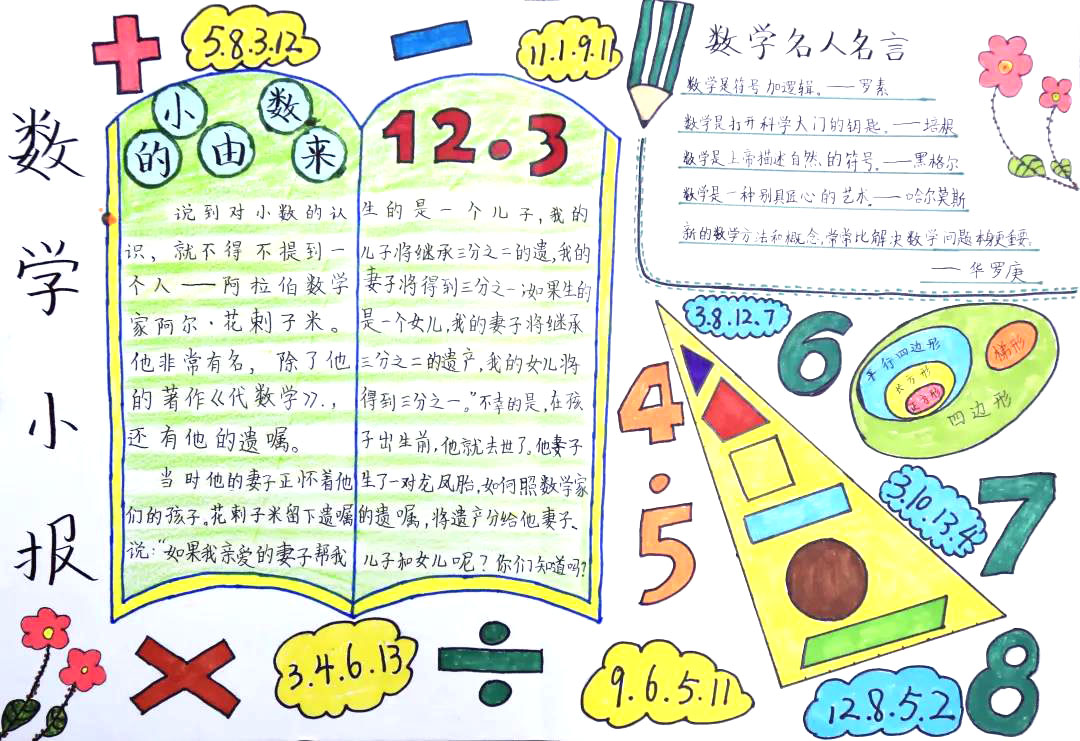 数学小报
5.8.3.12
11.1.9.11
小数
的由来
12.3
说到对小数的认
识，就不得不提到一
个人——阿拉伯数学
家阿尔·花剌子米。
他非常有名，除了他
的著作《代数学》.，
还有他的遗嘱。
当时他的妻子正怀着他
们的孩子。花剌子米留下遗嘱
说："如果我亲爱的妻子帮我
生的是一个儿子，我的
儿子将继承三分之二的遗，我的
妻子将得到三分之一；如果生的
是一个女儿，我的妻子将继承
三分之二的遗产，我的女儿将
得到三分之一。"不幸的是，在孩
子出生前，他就去世了。他妻子
生了一对龙凤胎，如何照数学家
的遗嘱，将遗产分给他妻子、
儿子和女儿呢？你们知道吗？
数学名人名言
数学是符号加逻辑。——罗素
数学是打开科学大门的钥匙。——培根
数学是上帝描述自然的符号。——黑格尔
数学是一种别具匠心的艺术。——哈尔莫斯
新的数学方法和概念，常常比解决数学问题本身更重要。
——华罗庚
3.8.12.7
6
平行四边形
长方形
正方形
梯形
四边形
4.5
3.10.13.4
7
3.4.6.13
9.6.5.11
12.8.5.2
8